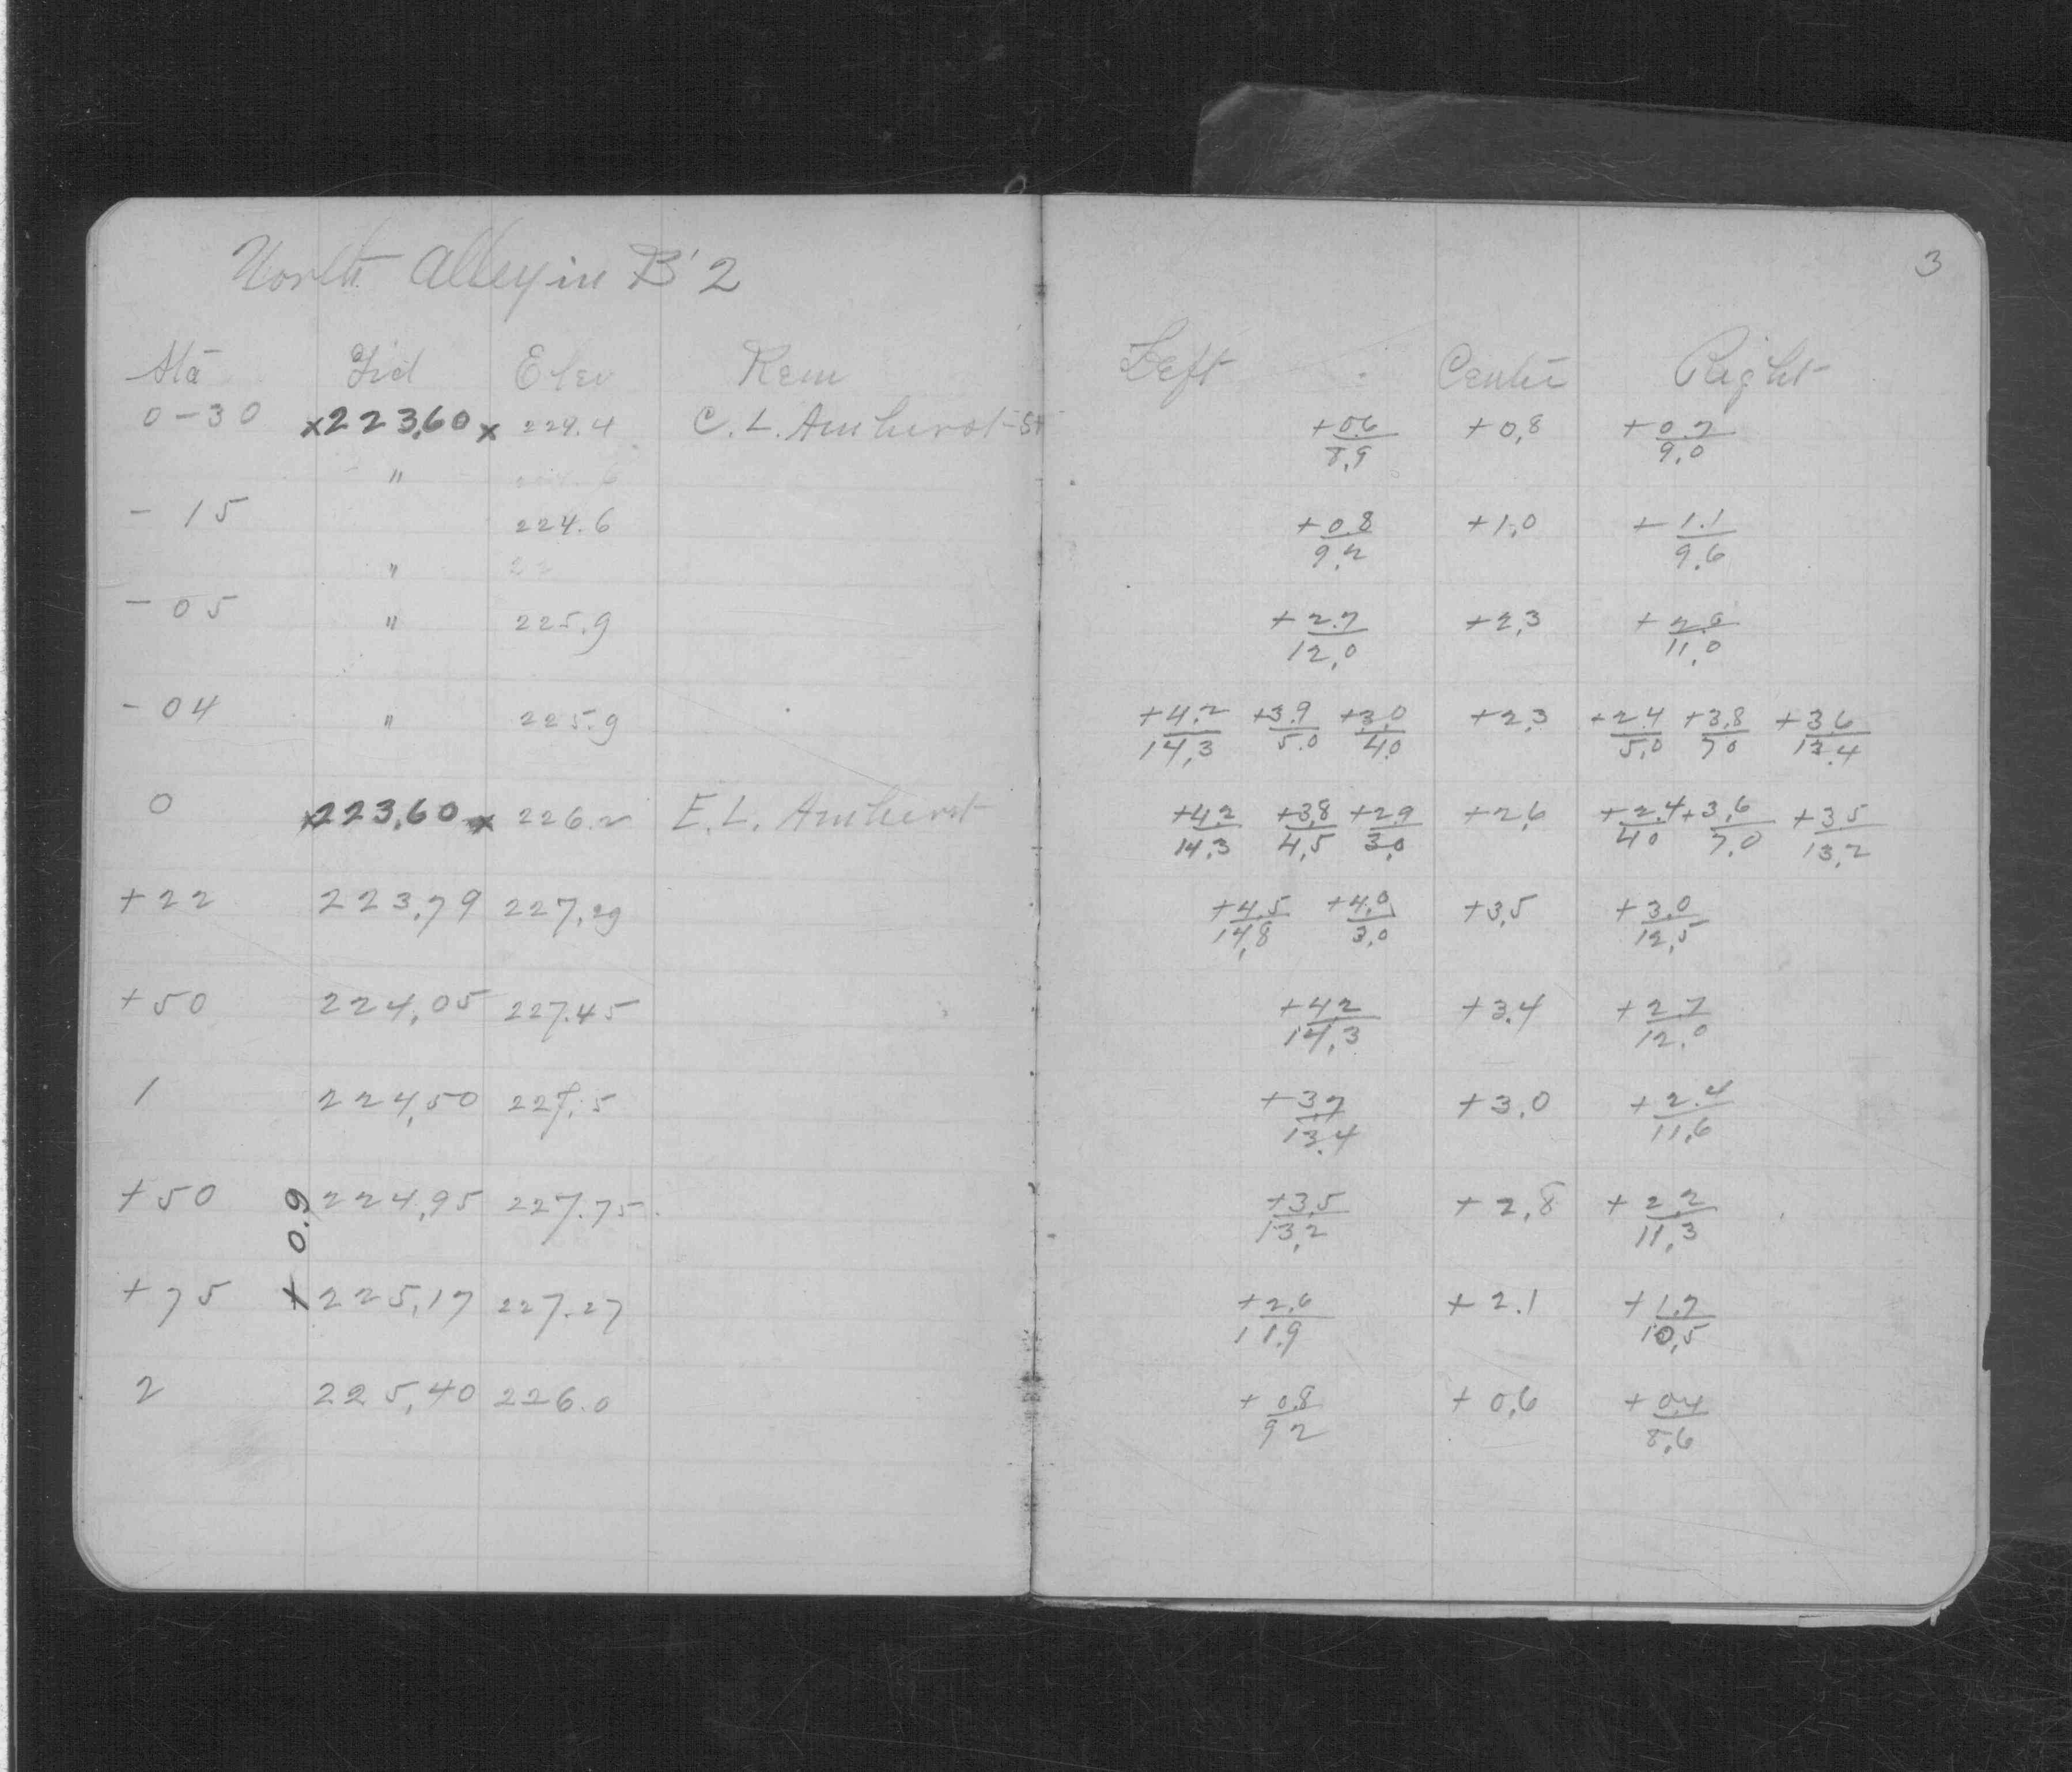 North Alley in B'2
3
Sta Grd Elev Rem Left Center Right
0-30 x223.60x 224.4 C.L. Amherst St +0.6/8.9 +0.8 +0.7/9.0
"
-15 224.6 +0.8/9.2 +1.0 +1.1/9.6
"
-05 " 225.9 +2.7/12.0 +2.3 +2.0/11.0
-04 " 225.9 +4.2/14.3 +3.9/5.0 +3.0/4.0 +2.3 +2.4/5.0 +3.8/7.0 +3.6/13.4
0 x223.60x 226.2 E.L. Amherst +4.2/14.3 +3.8/4.5 +2.9/3.0 +2.6 +2.4/4.0 +3.6/7.0 +3.5/13.2
+22 223.79 227.29 +4.5/14.8 +4.0/3.0 +3.5 +3.0/12.5
+50 224.05 227.45 +4.2/14.3 +3.4 +2.7/12.0
1 224.50 227.5 +3.7/13.4 +3.0 +2.4/11.6
+50 224.95 227.75 +3.5/13.2 +2.8 +2.2/11.3
+0.9
+75 225.17 227.27 +2.6/11.9 +2.1 +1.7/10.5
2 225.40 226.0 +0.8/9.2 +0.6 +0.4/8.6